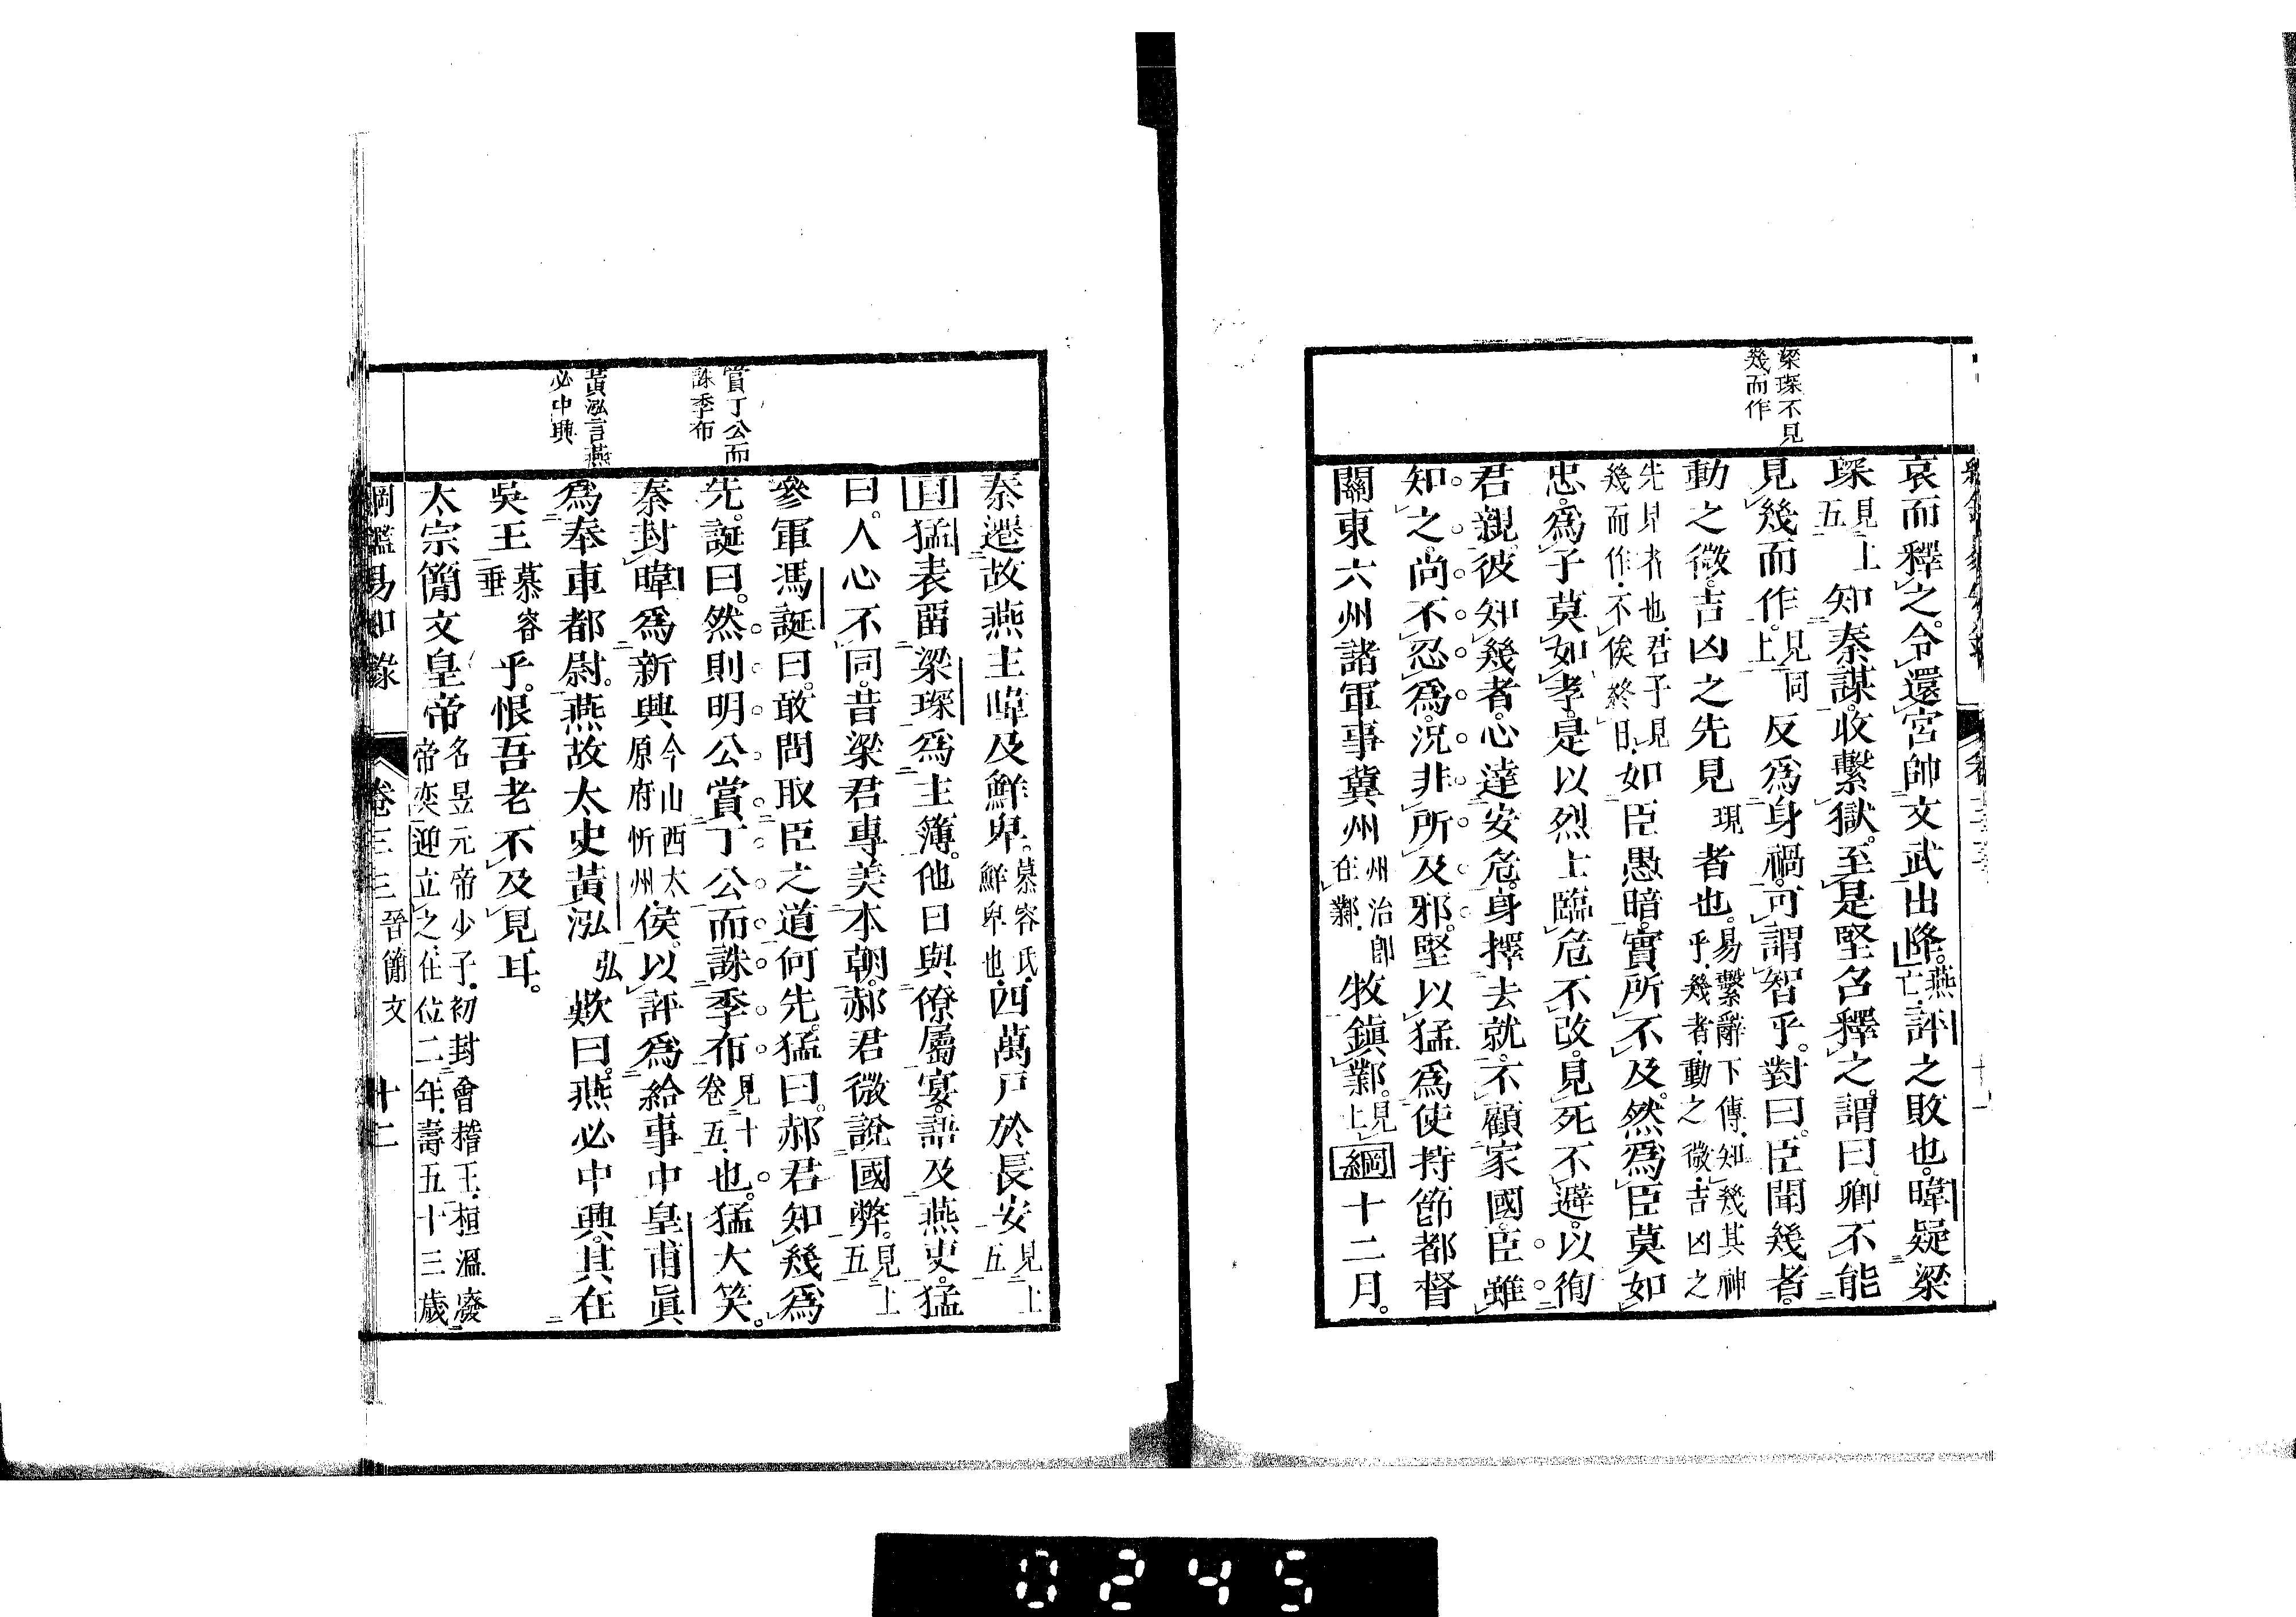 梁琛不見
幾而作
哀而釋之。令還宮帥文武出降。燕亡.評之敗也。暐疑梁
琛見上五知秦謀。收繫獄。至是堅召釋之。謂曰。卿不能
見幾而作。見同上反爲身禍。可謂智乎。對曰。臣聞幾者。
動之微。吉凶之先見現者也。易繫辭下傳.知幾其神乎.幾者.動之微.吉凶之
先見者也.君子見幾而作.不俟終日.如臣愚暗。實所不及。然爲臣莫如
忠。爲子莫如孝。是以烈士臨危不改。見死不避。以徇
君親。彼知幾者。心達安危。身擇去就。不顧家國。臣雖
知之。尚不忍爲。況非所及邪。堅以猛爲使持節都督
關東六州諸軍事冀州州治卽在鄴.牧鎮鄴。見上綱十二月。
賞丁公而
誅季布
黃泓言燕
必中興
秦遷故燕主暐及鮮卑。慕容氏.鮮卑也.四萬戶於長安見上五
目猛表畱梁琛爲主簿。他日與僚屬宴。語及燕史。猛
曰。人心不同。昔梁君專美本朝。郝君微說國弊。見上五
參軍馮誕曰。敢問取臣之道何先。猛曰。郝君知幾爲
先。誕曰。然則明公賞丁公而誅季布見十卷五.也。猛大笑。
秦封暐爲新興今山西太原府忻州.侯。以評爲給事中皇甫眞
爲奉車都尉。燕故太史黃泓弘歎曰。燕必中興。其在
吳王慕容垂乎。恨吾老不及見耳。
太宗簡文皇帝名昱元帝少子.初封會稽王.桓溫廢帝奕迎立之.在位二年.壽五十三歲
綱鑑易知錄 卷三三晉簡文 十二